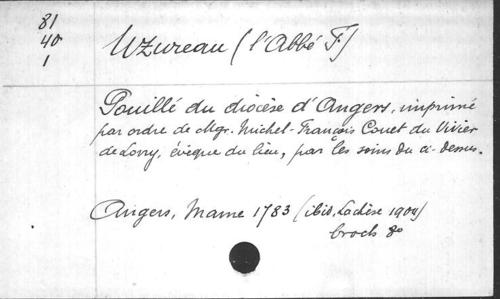 81
40
1
Uzureau (l'Abbé F)
Pouillé du diocèse d'Angers, imprimé
par ordre de Mgr. Michel-François Couet du Vivier
de Lorry, évêque du lieu, par les soins du ci-dessus.
Angers, Mame 1783 (ibid, Lachèse 1904)
broch 8o